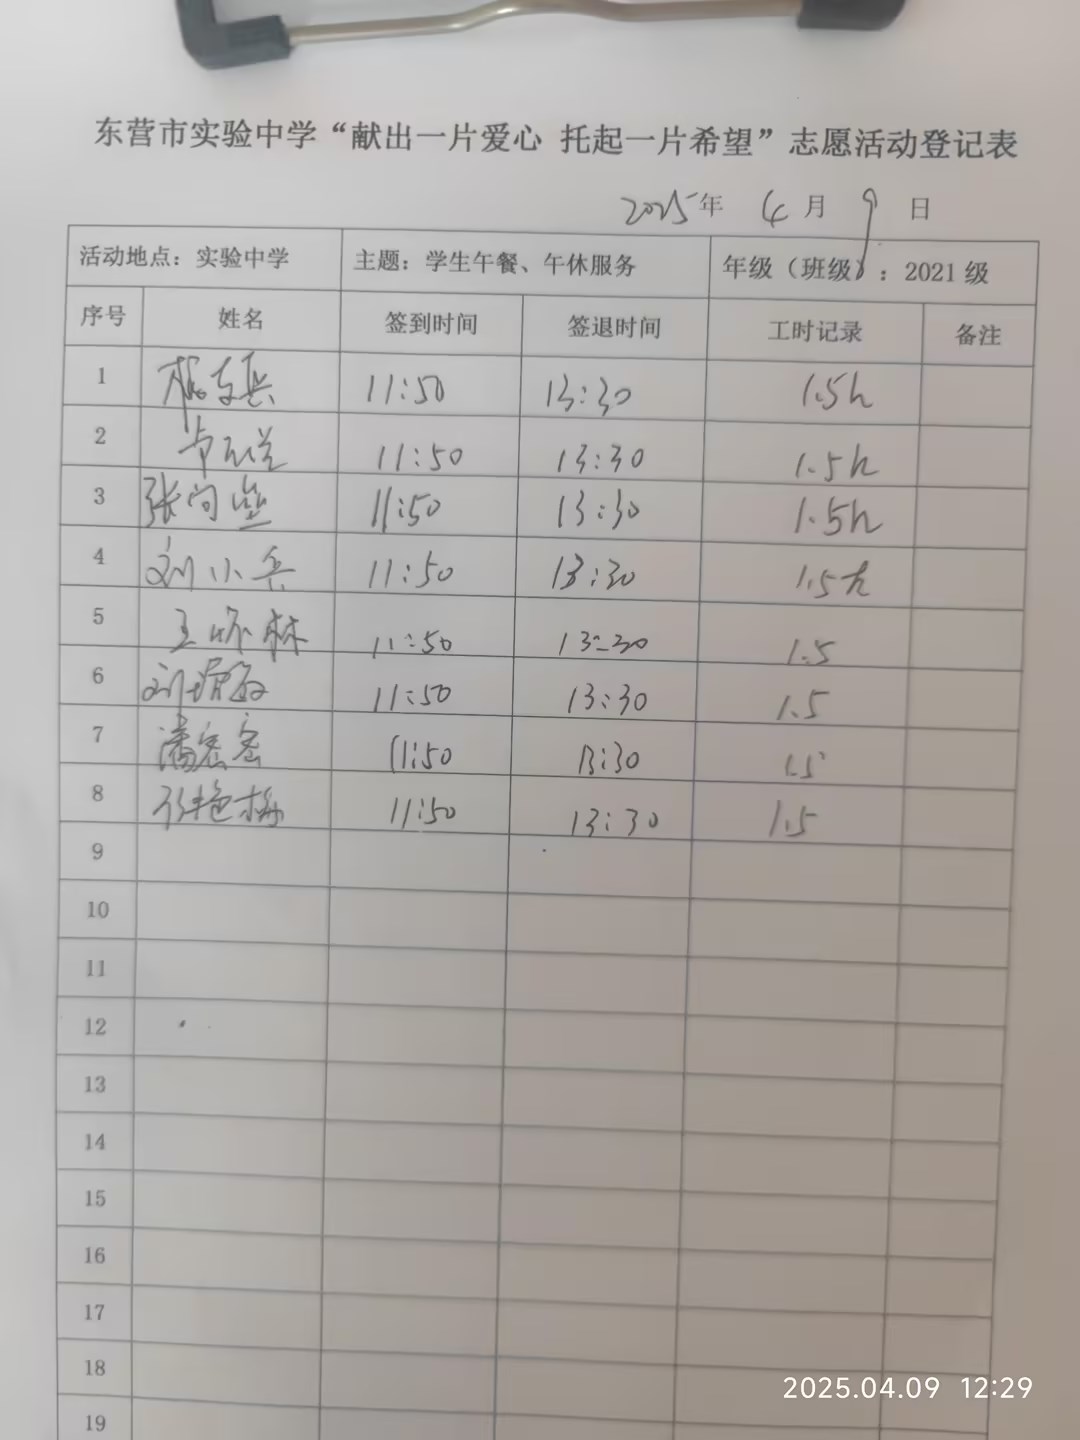 东营市实验中学“献出一片爱心 托起一片希望”志愿活动登记表
2025年 4月 9日
活动地点：实验中学 主题：学生午餐、午休服务 年级（班级）：2021级
序号 姓名 签到时间 签退时间 工时记录 备注
1 11:50 13:30 1.5h
2 11:50 13:30 1.5h
3 张 11:50 13:30 1.5h
4 刘小兵 11:50 13:30 1.5h
5 王 林 11:50 13:30 1.5
6 刘 11:50 13:30 1.5
7 潘 11:50 13:30 1.5
8 艳梅 11:50 13:30 1.5
9
10
11
12
13
14
15
16
17
18
19
2025.04.09 12:29